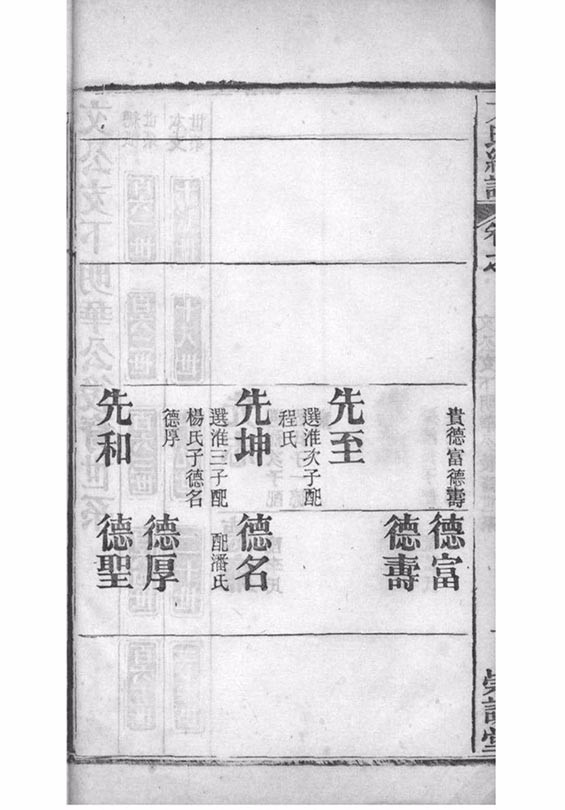 貴德富德壽
先至
選淮次子配
程氏
先坤
選淮三子配
楊氏子德名
德厚
先和
德富
德壽
德名
配潘氏
德厚
德聖